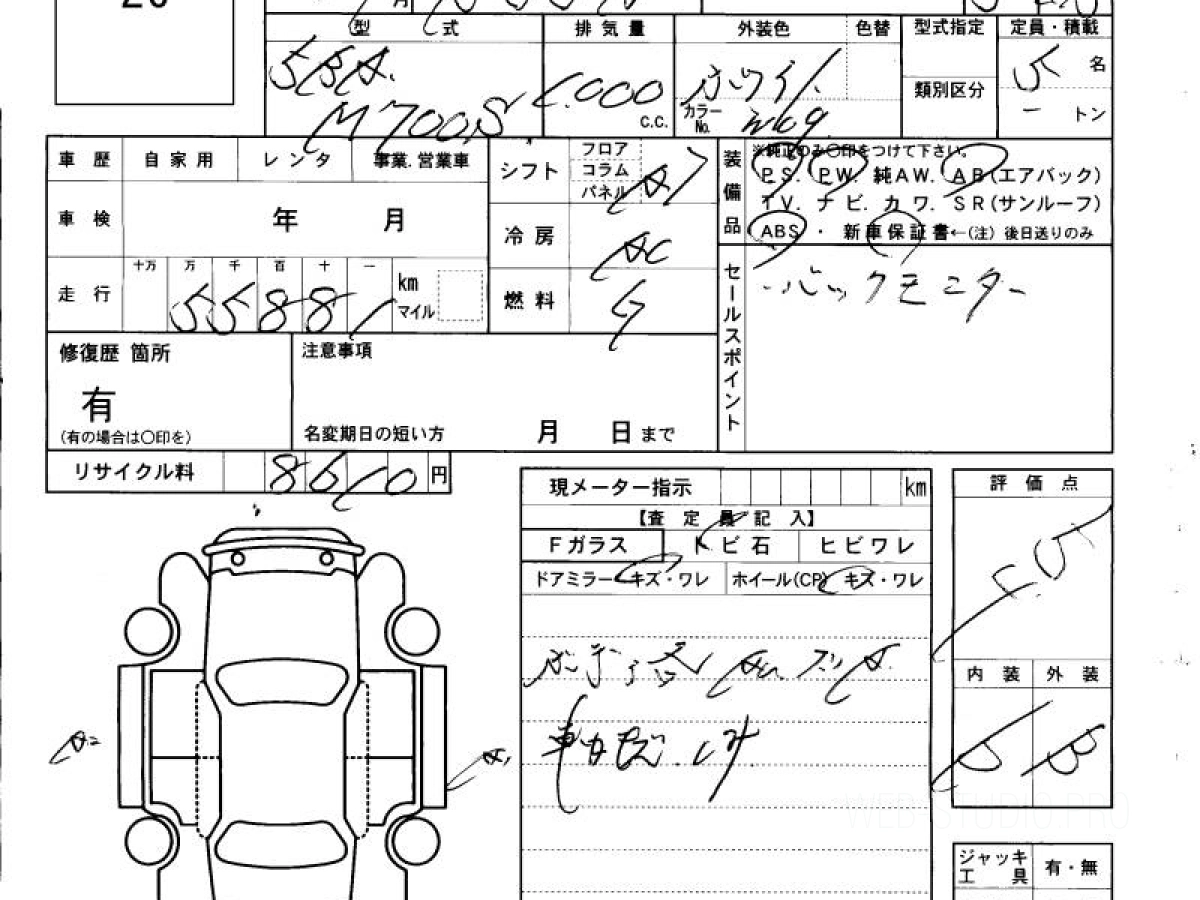 型 式
排 気 量
外装色
色替
型式指定
定員・積載
5BA.
M700S
1.000
c.c.
ホワイト
カラーNo.
W09
類別区分
5 名
ー トン
車 歴
自 家 用
レ ン タ
事業.営業車
シフト
フロア
コラム
パネル
AT
装備品
※純正のみ〇印をつけて下さい。
P S. P W. 純A W. A B(エアバック)
T V. ナ ビ. カ ワ. S R(サンルーフ)
ABS ・ 新車保証書←(注) 後日送りのみ
車 検
年 月
冷 房
AC
走 行
十万 万 千 百 十 一
55881
km
マイル
燃 料
G
セールスポイント
バックモニター
修復歴 箇所
有
(有の場合は〇印を)
注意事項
名変期日の短い方
月 日 まで
リサイクル料
8610 円
現メーター指示
km
【査 定 員 記 入】
Fガラス
ト ビ 石
ヒ ビ ワ レ
ドアミラー キズ・ワレ
ホイール(CP) キズ・ワレ
評 価 点
内 装
外 装
B
B
A2
ジャッキ
工 具
有・無
WEB-STUDIO.PRO